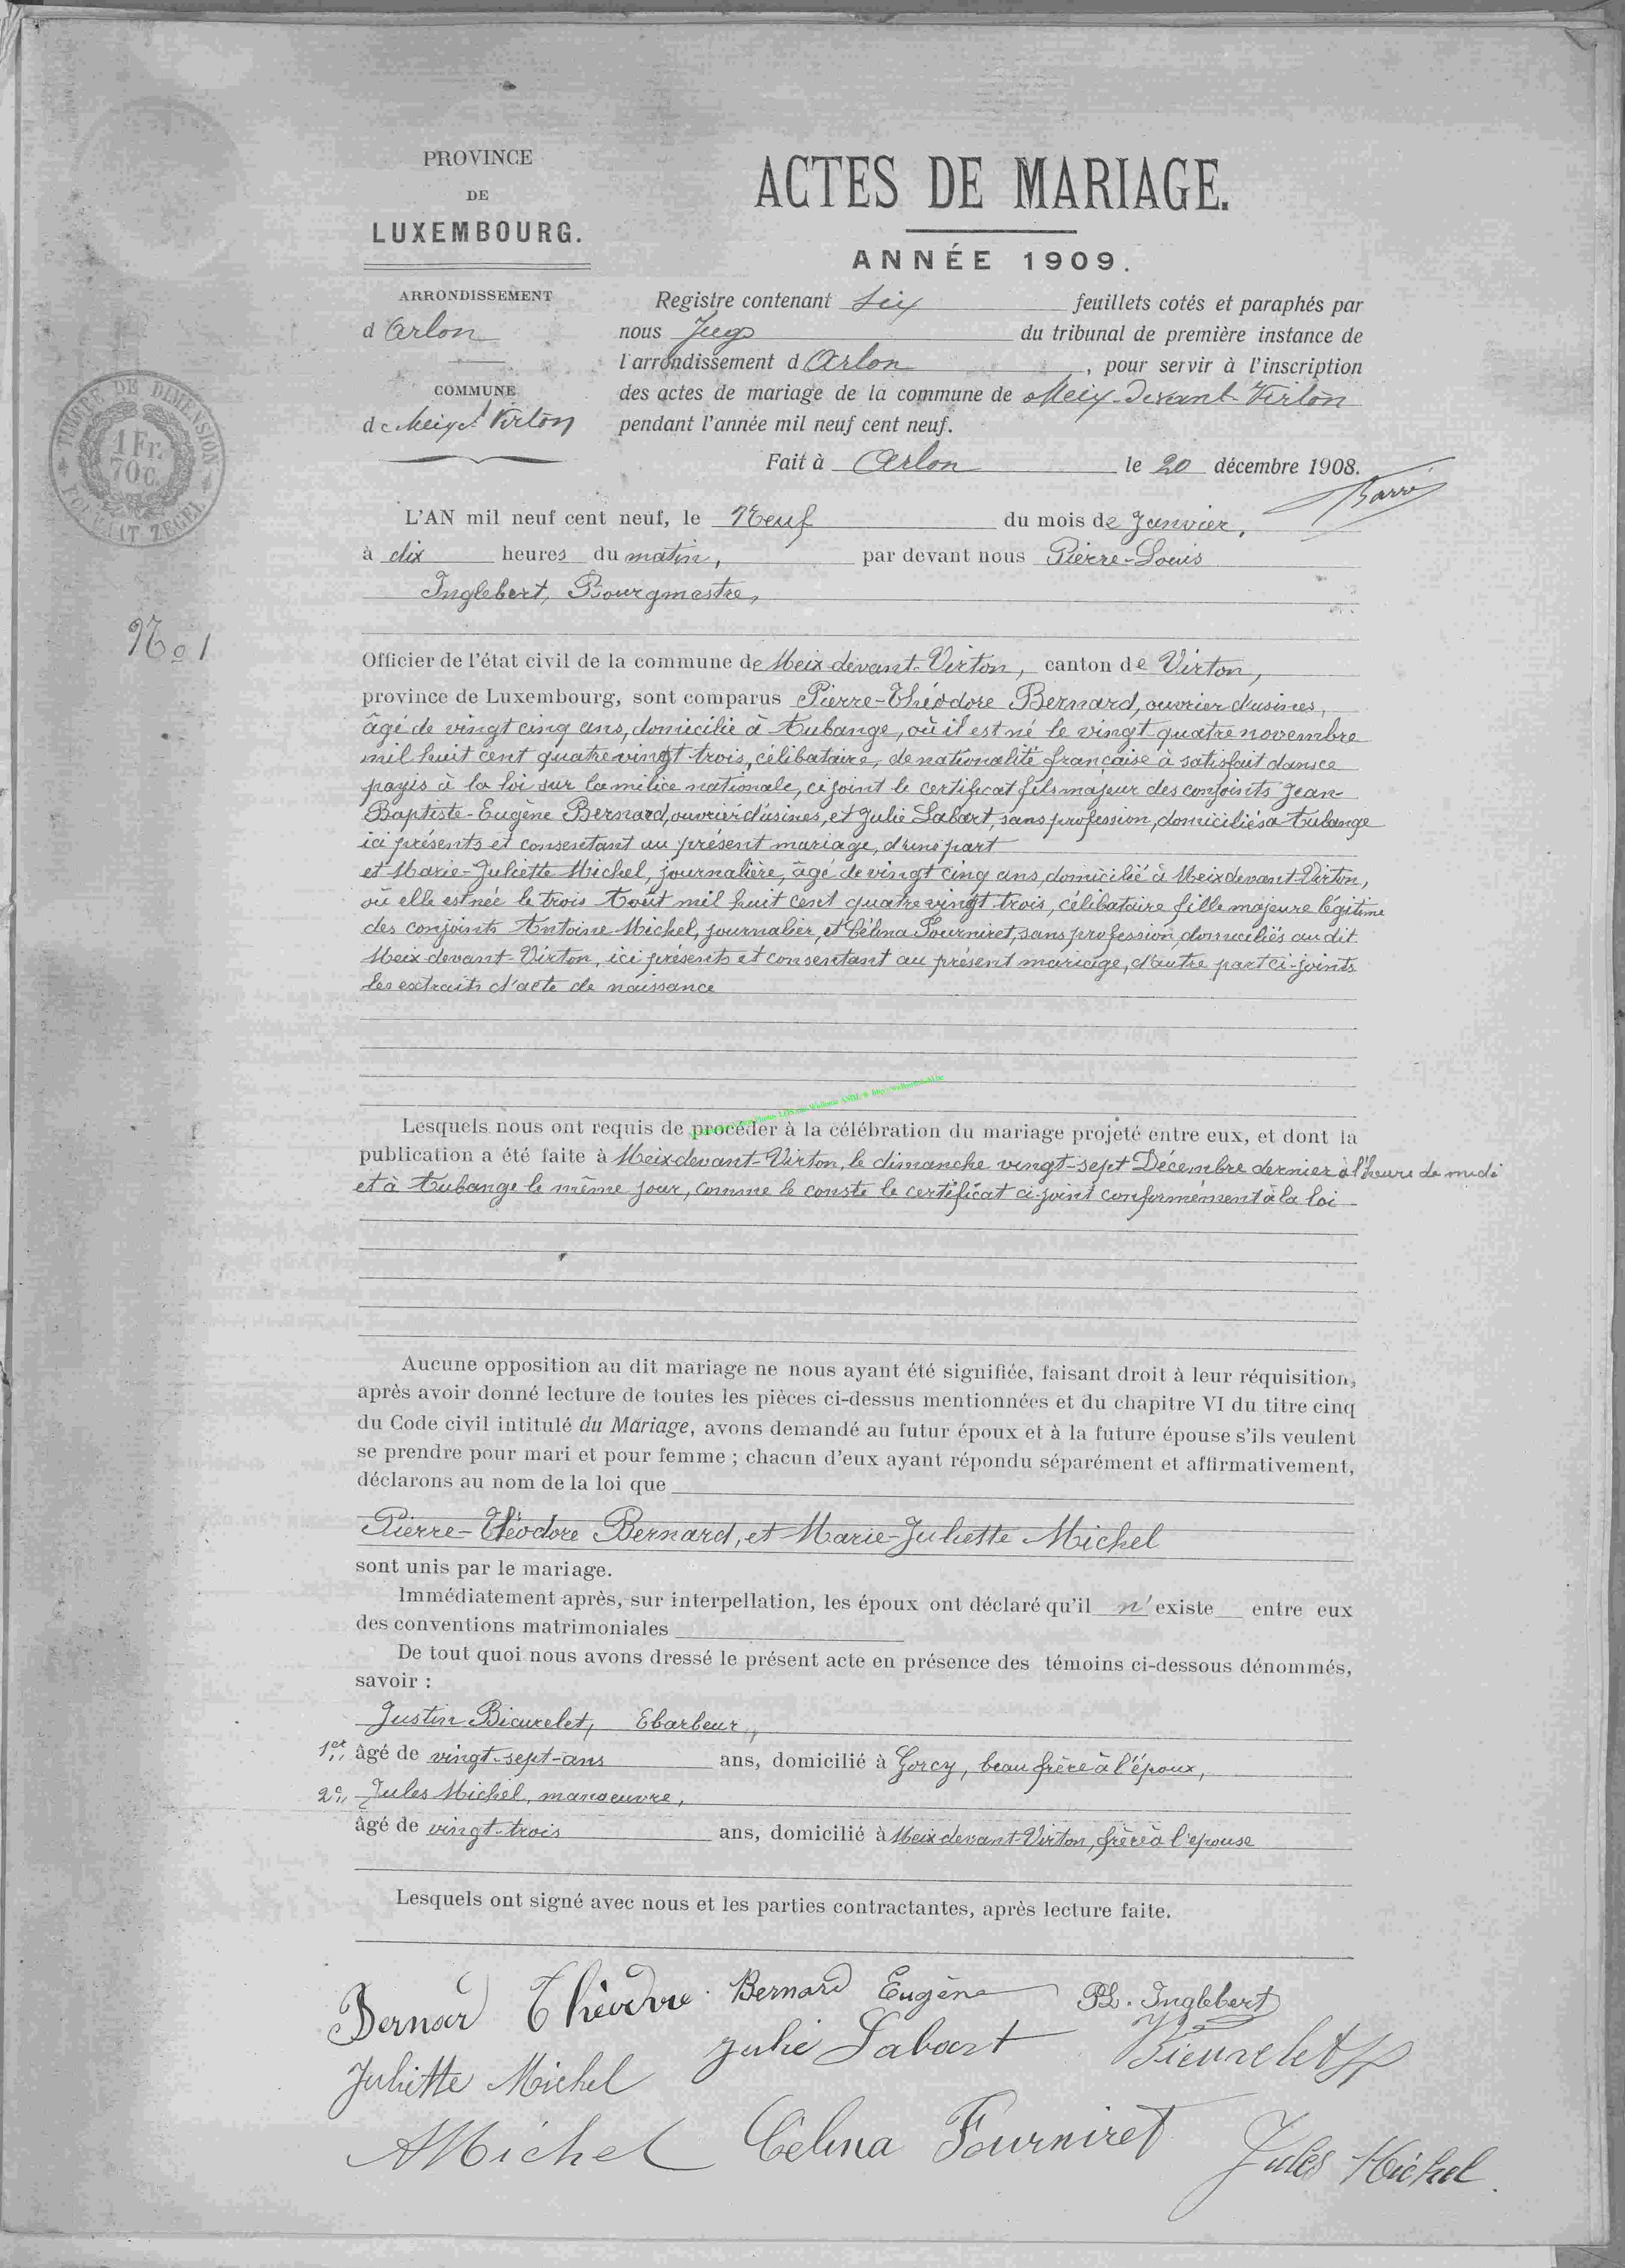 PROVINCE
DE
LUXEMBOURG.
ARRONDISSEMENT
d'Arlon
COMMUNE
de Meix dt Virton
ACTES DE MARIAGE.
ANNÉE 1909.
Registre contenant Six feuillets cotés et paraphés par
nous Juge du tribunal de première instance de
l'arrondissement d'Arlon, pour servir à l'inscription
des actes de mariage de la commune de Meix-Devant-Virton
pendant l'année mil neuf cent neuf.
Fait à Arlon le 20 décembre 1908.
TIMBRE DE DIMENSION
1 Fr.
70 C.
FORMAAT ZEGEL
No 1
L'AN mil neuf cent neuf, le Neuf du mois de Janvier,
à dix heures du matin, par devant nous Pierre-Louis
Inglebert, Bourgmestre,
Officier de l'état civil de la commune de Meix devant-Virton, canton de Virton,
province de Luxembourg, sont comparus Pierre-Théodore Bernard, ouvrier d'usines,
âgé de vingt cinq ans, domicilié à Aubange, où il est né le vingt quatre novembre
mil huit cent quatre vingt trois, célibataire, de nationalité française à satisfait dans ce
payis à la loi sur la milice nationale, ci joint le certificat fils majeur des conjoints Jean-
Baptiste-Eugène Bernard, ouvrier d'usines, et Julie Labart, sans profession, domiciliés à Aubange
ici présents et consentant au présent mariage, d'une part
et Marie-Juliette Michel, journalière, âgé de vingt cinq ans, domicilié à Meix devant-Virton,
où elle est née le trois Août mil huit cent quatre vingt trois, célibataire fille majeure légitime
des conjoints Antoine Michel, journalier, et Célina Fourniret, sans profession, domiciliés au dit
Meix devant-Virton, ici présents et consentant au présent mariage, d'autre part ci-joints
les extraits d'acte de naissance
Lesquels nous ont requis de procéder à la célébration du mariage projeté entre eux, et dont la
publication a été faite à Meix devant-Virton, le dimanche vingt-sept Décembre dernier à l'heure de midi
et à Aubange le même jour, comme le conste le certificat ci-joint conformément à la loi
Aucune opposition au dit mariage ne nous ayant été signifiée, faisant droit à leur réquisition,
après avoir donné lecture de toutes les pièces ci-dessus mentionnées et du chapitre VI du titre cinq
du Code civil intitulé du Mariage, avons demandé au futur époux et à la future épouse s'ils veulent
se prendre pour mari et pour femme ; chacun d'eux ayant répondu séparément et affirmativement,
déclarons au nom de la loi que
Pierre-Théodore Bernard, et Marie-Juliette Michel
sont unis par le mariage.
Immédiatement après, sur interpellation, les époux ont déclaré qu'il n'existe entre eux
des conventions matrimoniales
De tout quoi nous avons dressé le présent acte en présence des témoins ci-dessous dénommés,
savoir :
Justin Bieuvelet, Ebarbeur,
1er, âgé de vingt-sept-ans ans, domicilié à Gorcy, beau frère à l'époux,
2e, Jules Michel, manoeuvre,
âgé de vingt-trois ans, domicilié à Meix devant-Virton, frère à l'épouse
Lesquels ont signé avec nous et les parties contractantes, après lecture faite.
Bernard Théodore Bernard Eugène PL. Inglebert
Juliette Michel Julie Labart
AMichel Célina Fourniret Jules Michel